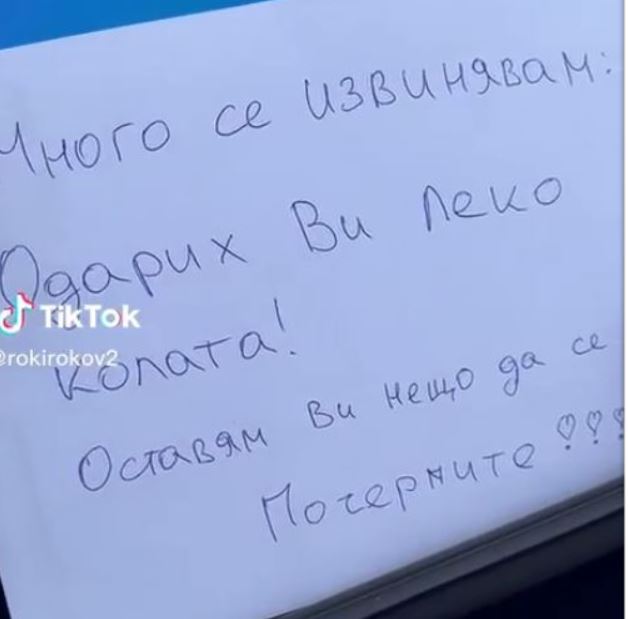 Много се извинявам:
Одарих Ви леко
TikTok
@rokirokov2
колата!
Оставям Ви нещо да се
Почерпите !!!